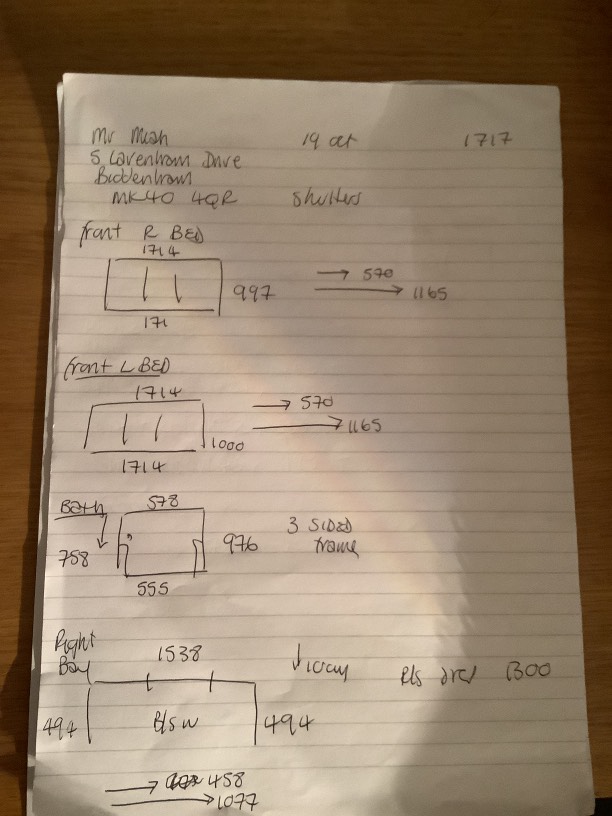 Mr Miah 19 oct 1717
5 Lavenham Drive
Biddenham
MK40 4QR Shutters
front R BED
1714
997 → 570
→ 1165
171
front L BED
1714
→ 570
1000 → 1165
1714
Bath 578
758 976 3 SIDED
frame
555
Right
Bay 1538
1300
494 494
→ 458
→ 1077